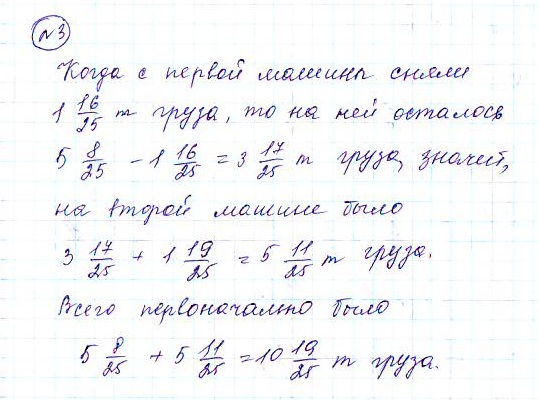 №3
Когда с первой машины сняли
1 16/25 т груза, то на ней осталось
5 8/25 - 1 16/25 = 3 17/25 т груза, значит,
на второй машине было
3 17/25 + 1 19/25 = 5 11/25 т груза.
Всего первоначально было
5 8/25 + 5 11/25 = 10 19/25 т груза.